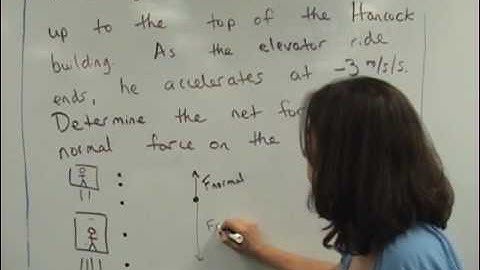 up to the top of the Hancock
building. As the elevator ride
ends, he accelerates at -3 m/s/s.
Determine the net for
normal force on the
Fnormal
F